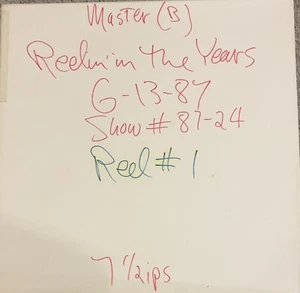 Master (B)
Reelin' in the Years
6-13-87
Show # 87-24
Reel # 1
7 1/2 ips